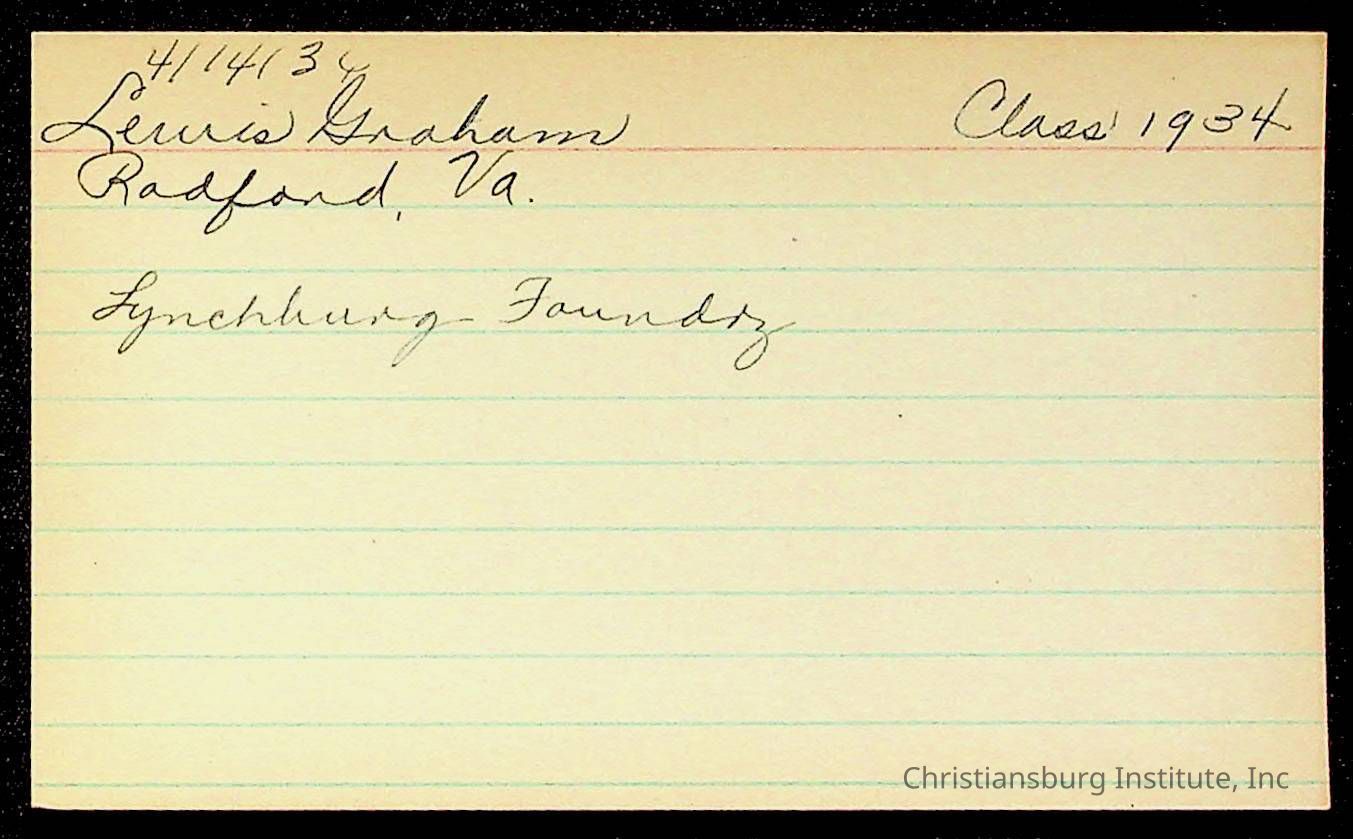 4/14/34
Lewis Graham Class 1934
Radford, Va.
Lynchburg Foundry
Christiansburg Institute, Inc